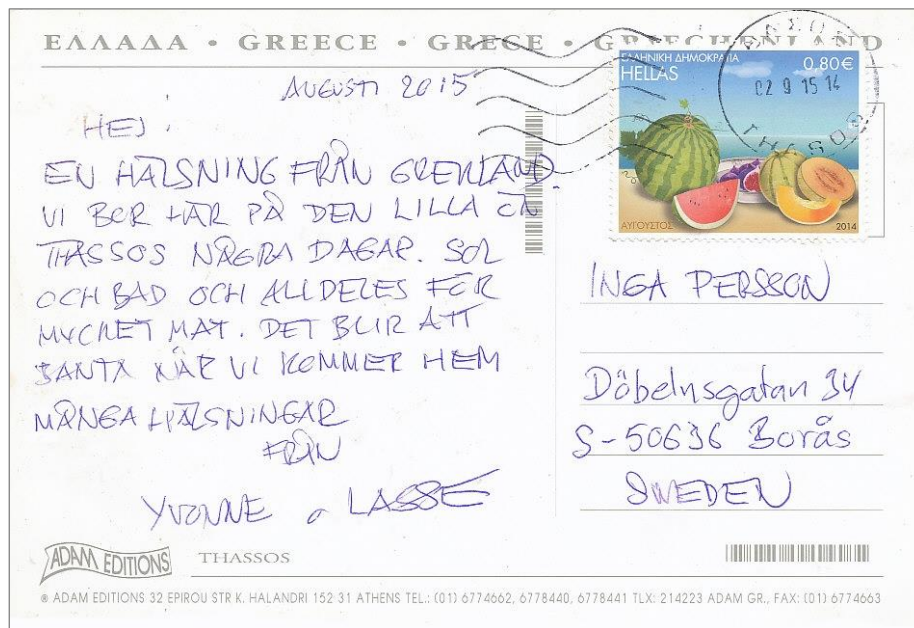 ΕΛΛΑΔΑ • GREECE • GRECE • GRIECHENLAND
AUGUSTI 2015
HEJ!
EN HÄLSNING FRÅN GREKLAND.
VI BOR HÄR PÅ DEN LILLA ÖN
THASSOS NÅGRA DAGAR. SOL
OCH BAD OCH ALLDELES FÖR
MYCKET MAT. DET BLIR ATT
BANTA NÄR VI KOMMER HEM
MÅNGA HÄLSNINGAR
FRÅN
YVONNE o LASSE
ΕΛΛΗΝΙΚΗ ΔΗΜΟΚΡΑΤΙΑ
HELLAS
0,80€
ΑΥΓΟΥΣΤΟΣ
2014
02 9 15 14
THASOS
INGA PERSSON
Döbelnsgatan 34
S-50636 Borås
SWEDEN
ADAM EDITIONS
THASSOS
® ADAM EDITIONS 32 EPIROU STR K. HALANDRI 152 31 ATHENS TEL.: (01) 6774662, 6778440, 6778441 TLX: 214223 ADAM GR., FAX: (01) 6774663